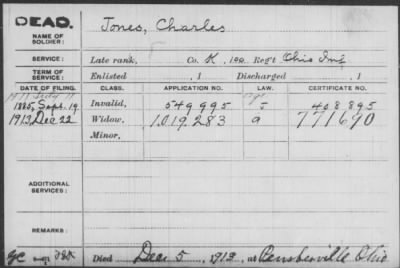 DEAD.
Jones, Charles
NAME OF SOLDIER:
SERVICE: Late rank, Co. K, 100 Reg't Ohio Inf
TERM OF SERVICE: Enlisted , 1 Discharged , 1
DATE OF FILING. CLASS. APPLICATION NO. LAW. CERTIFICATE NO.
1885, Sept. 19 Invalid, 549995 J 408895
1913, Dec 22 Widow, 1019283 a 771670
Minor,
ADDITIONAL SERVICES:
REMARKS:
Died Dec 5, 1913, at Pemberville Ohio